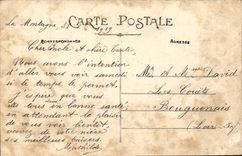 La Montagne
CARTE POSTALE
1919
CORRESPONDANCE
ADRESSE
Cher Oncle et Chère Tante
Nous avons l'intention
d'aller vous voir samedi
si le temps le permet.
J'espère que vous
êtes tous en bonne santé
en attendant le plaisir
de vous voir
recevez de votre nièce
ses meilleurs baisers
Mathilde
Mr & Mme David
Les Couëts
Bouguenais
(Loire-Inf)